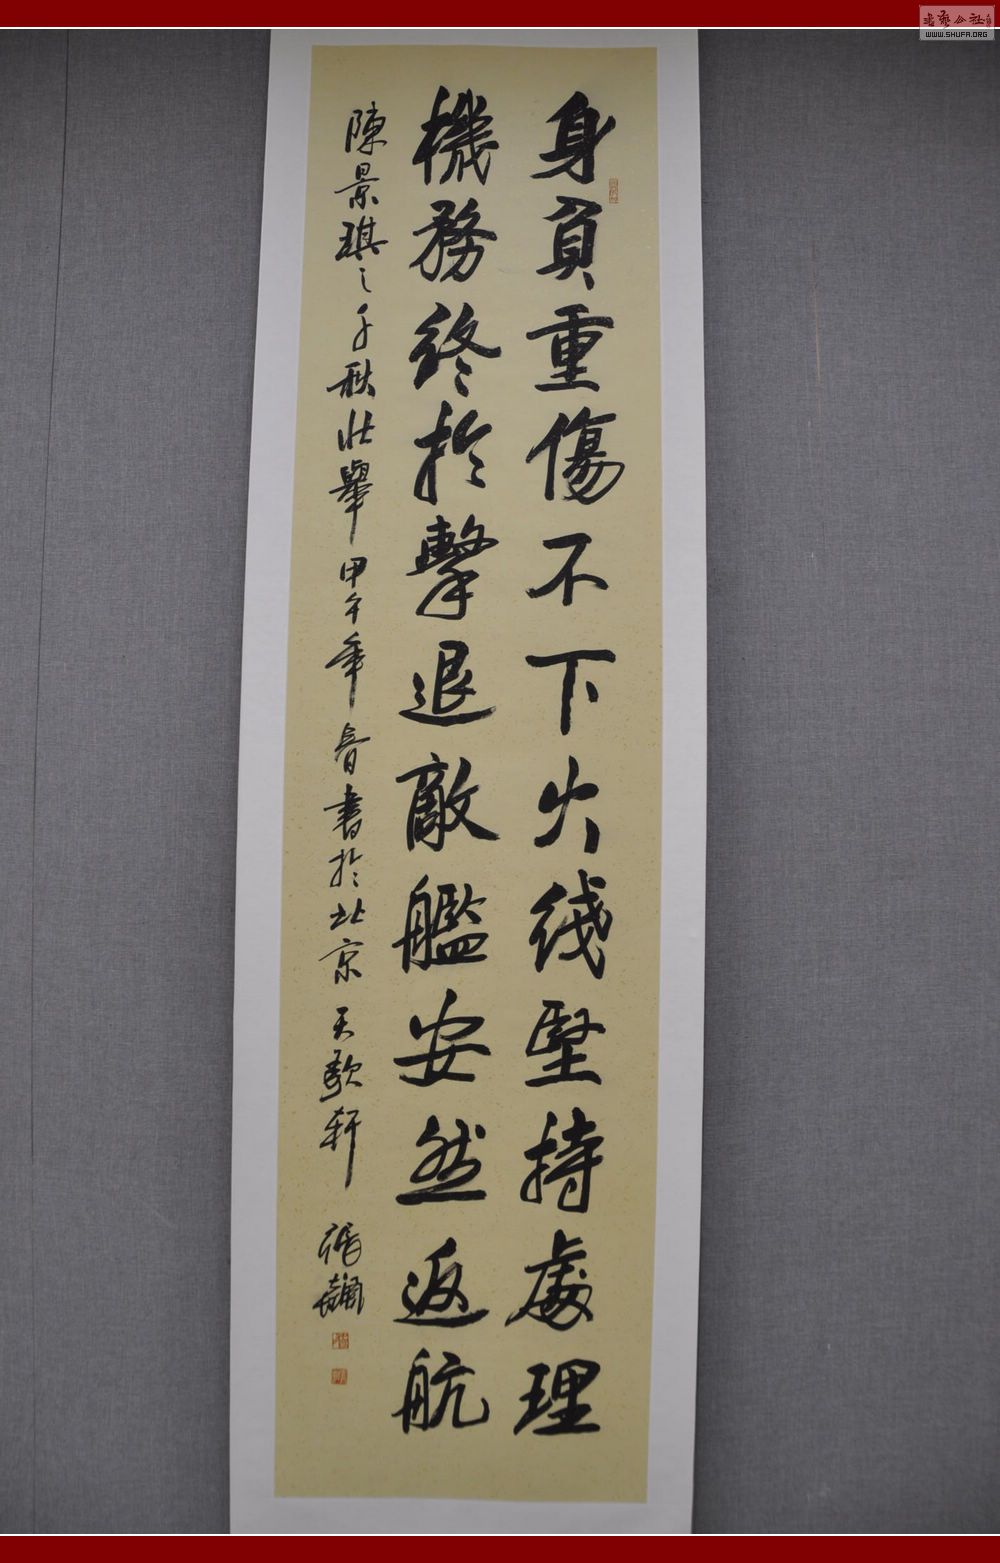 身負重傷不下火线堅持處理
機務終於擊退敵艦安然返航
陳景琪之千秋壯舉甲午年春書於北京天歌軒張飆
书艺公社
WWW.SHUFA.ORG